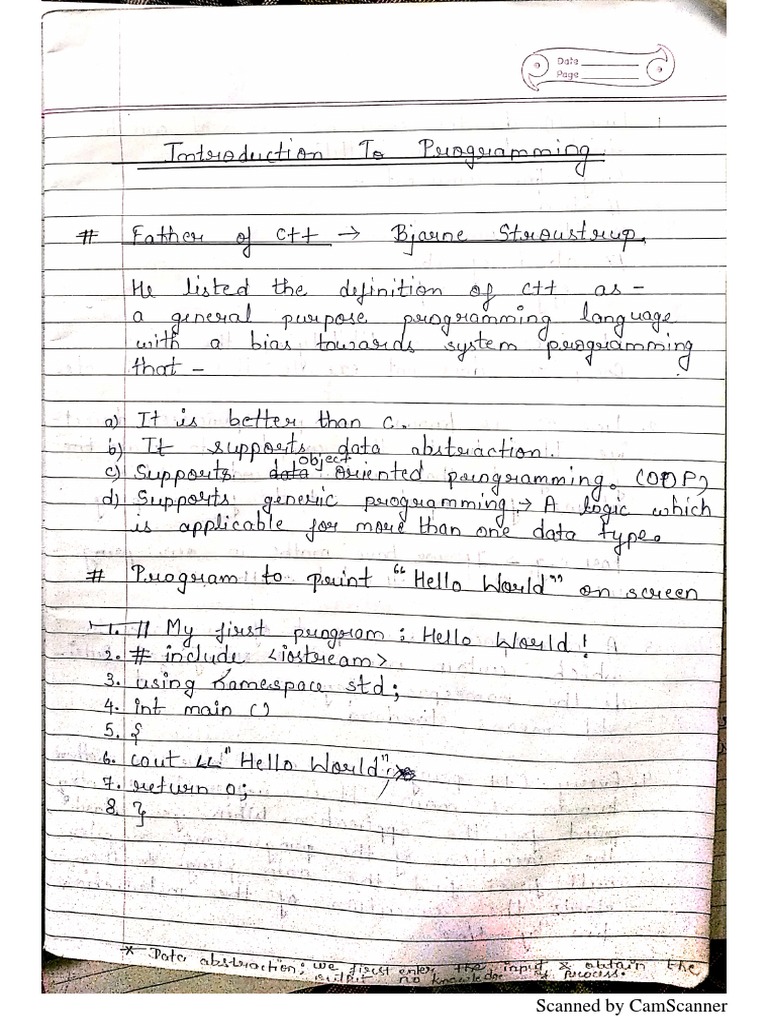 Date
Page
Introduction To Programming
# Father of C++ → Bjarne Stroustrup.
He listed the definition of C++ as -
a general purpose programming language
with a bias towards system programming
that -
a) It is better than C.
b) It supports data abstraction.
c) Supports data object oriented programming. (OOP)
d) Supports generic programming → A logic which
is applicable for more than one data type.
# Program to print "Hello World" on screen
1. // My first program : Hello World!
2. # include <iostream>
3. using namespace std;
4. int main ()
5. {
6. cout << "Hello World";
7. return 0;
8. }
* Data abstraction; we first enter the input & obtain the
output no knowledge of process.
Scanned by CamScanner